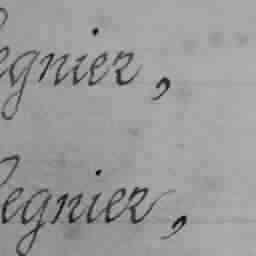 egnier,
Regnier,